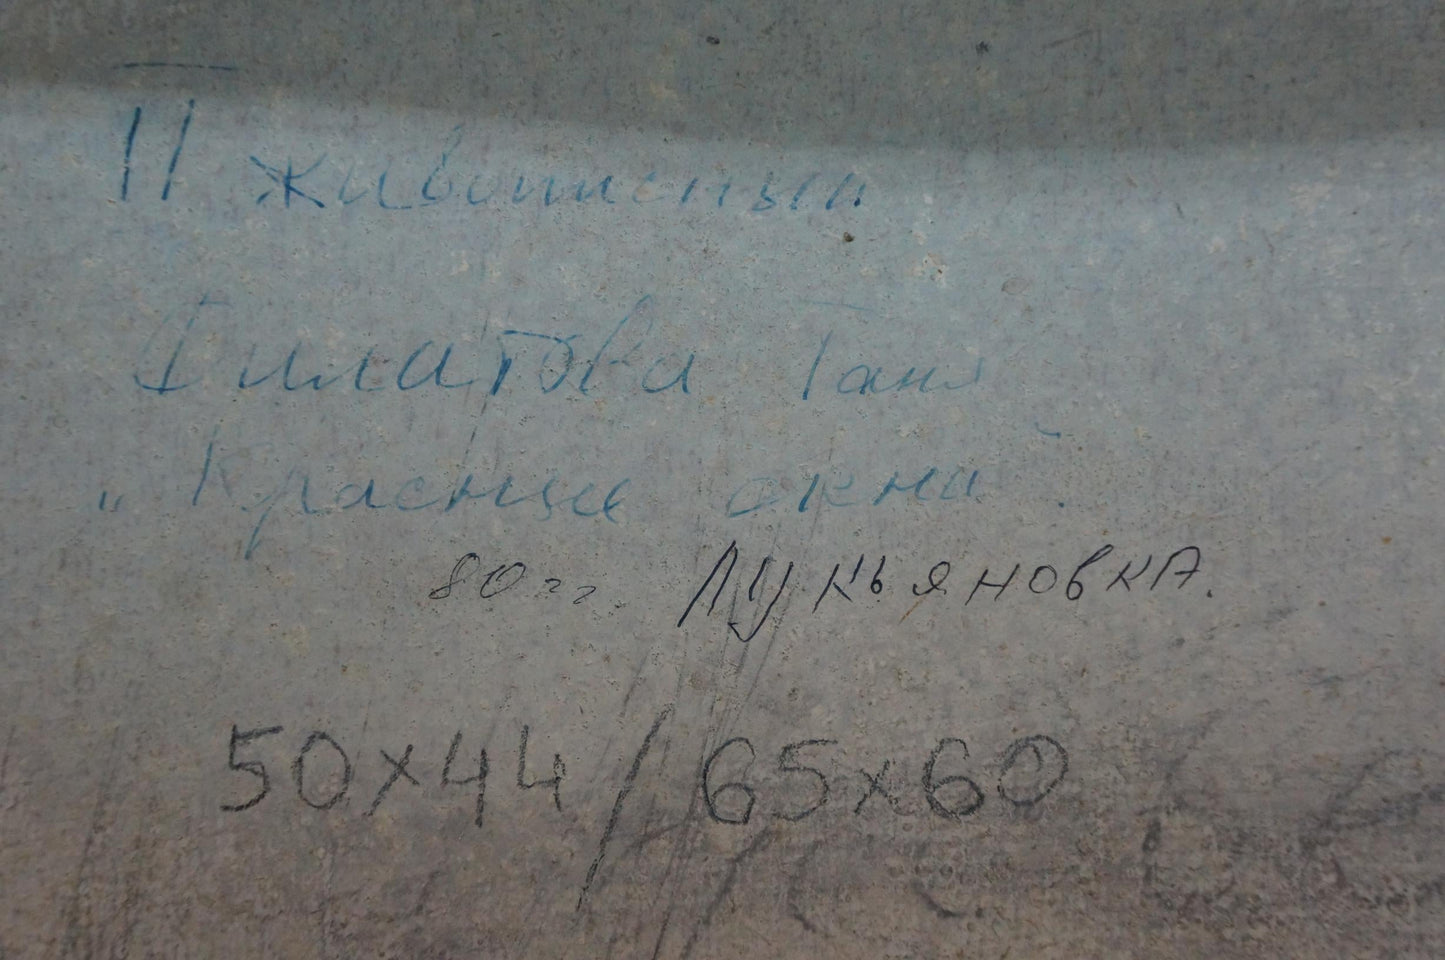 II живописный
Филатова Таня
„Красные окна".
80 гг. Лукьяновка.
50х44 / 65х60